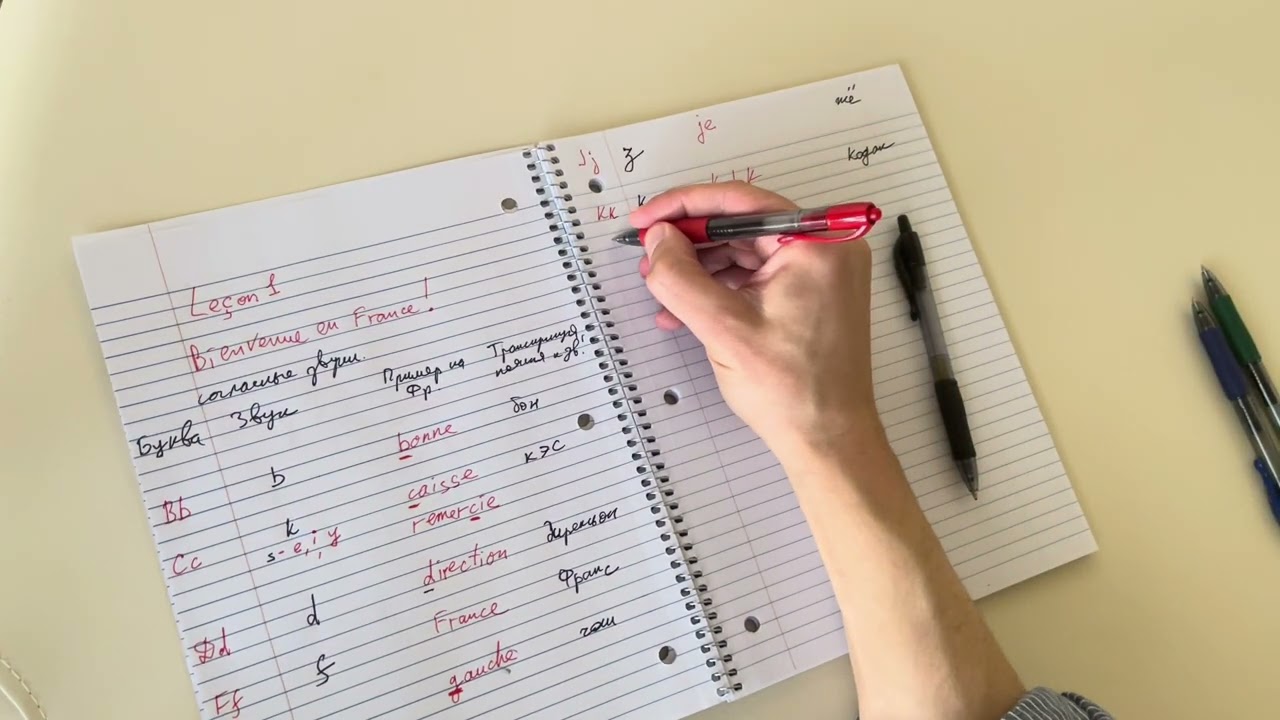 Leçon 1
Bienvenue en France!
согласные звуки.
Буква Звук Пример на Фр Транскрипция
Bb b bonne бон
Cc k caisse кэс
s - e, i, y remercie
Dd d direction
Ff f France Франс
gauche гош
Jj je жё
Kk k кодак